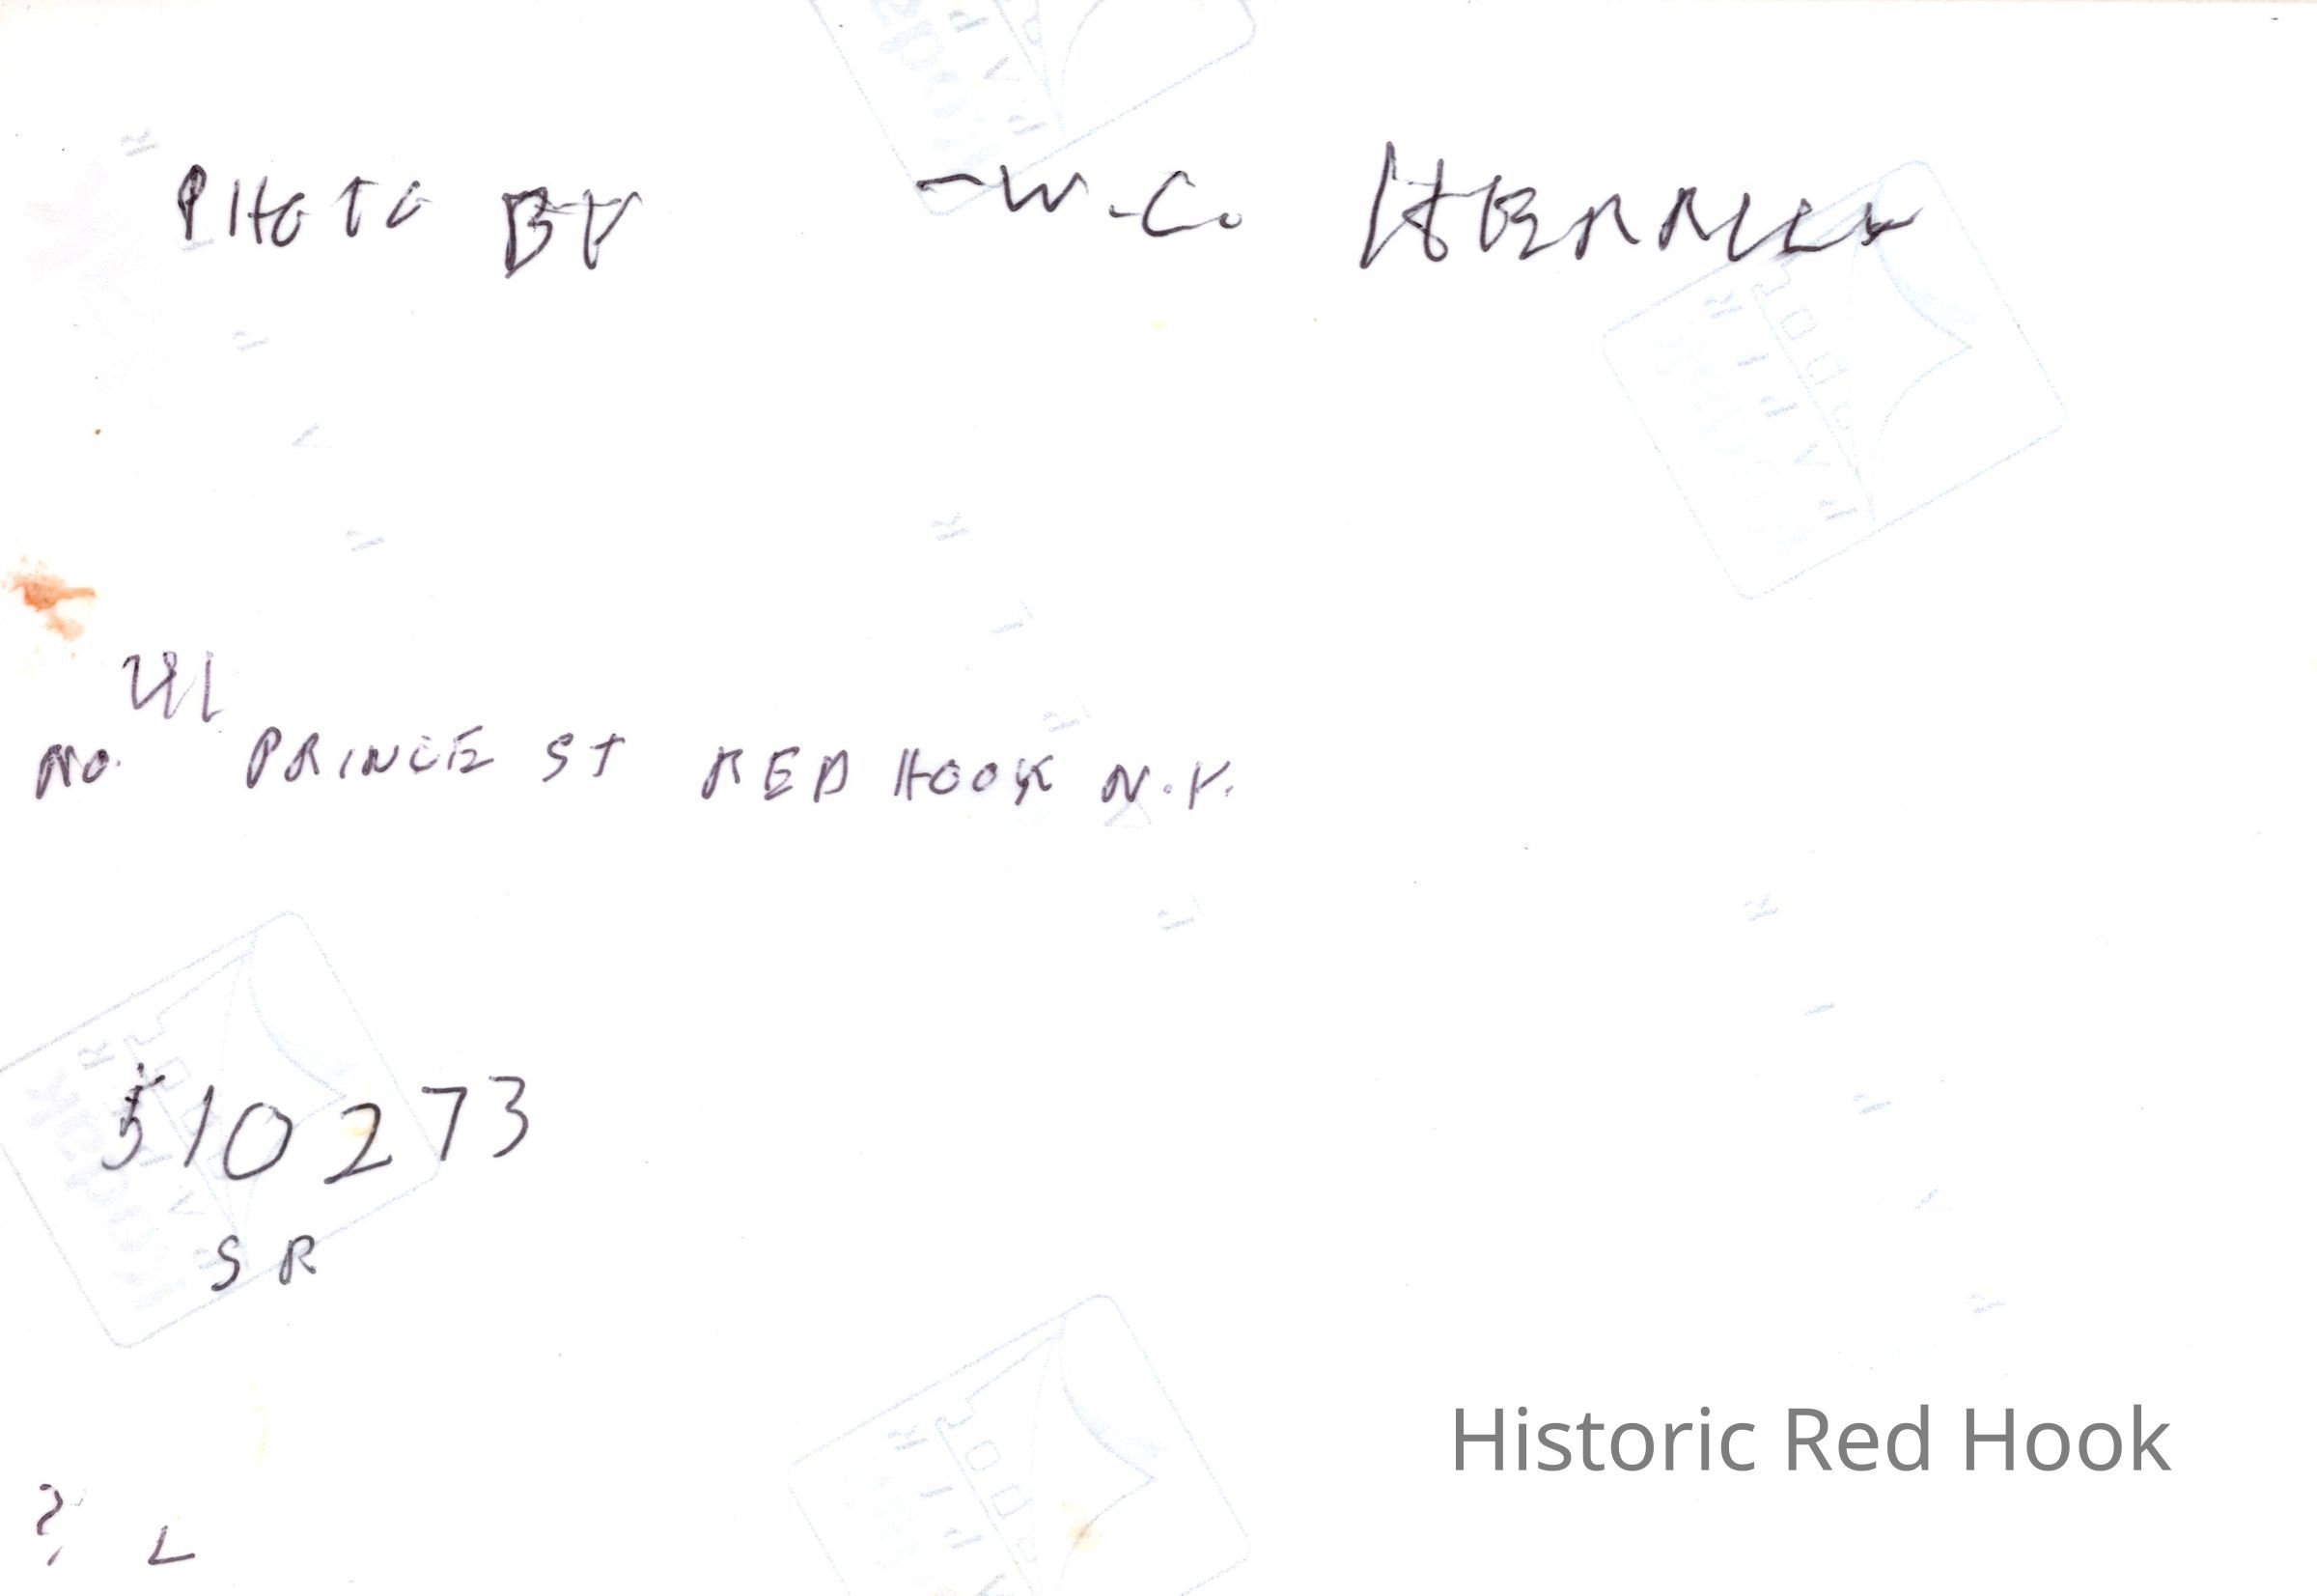 PHOTO BY -W.C.
NO. PRINCE ST RED HOOK N.Y.
510273
SR
Historic Red Hook
? L